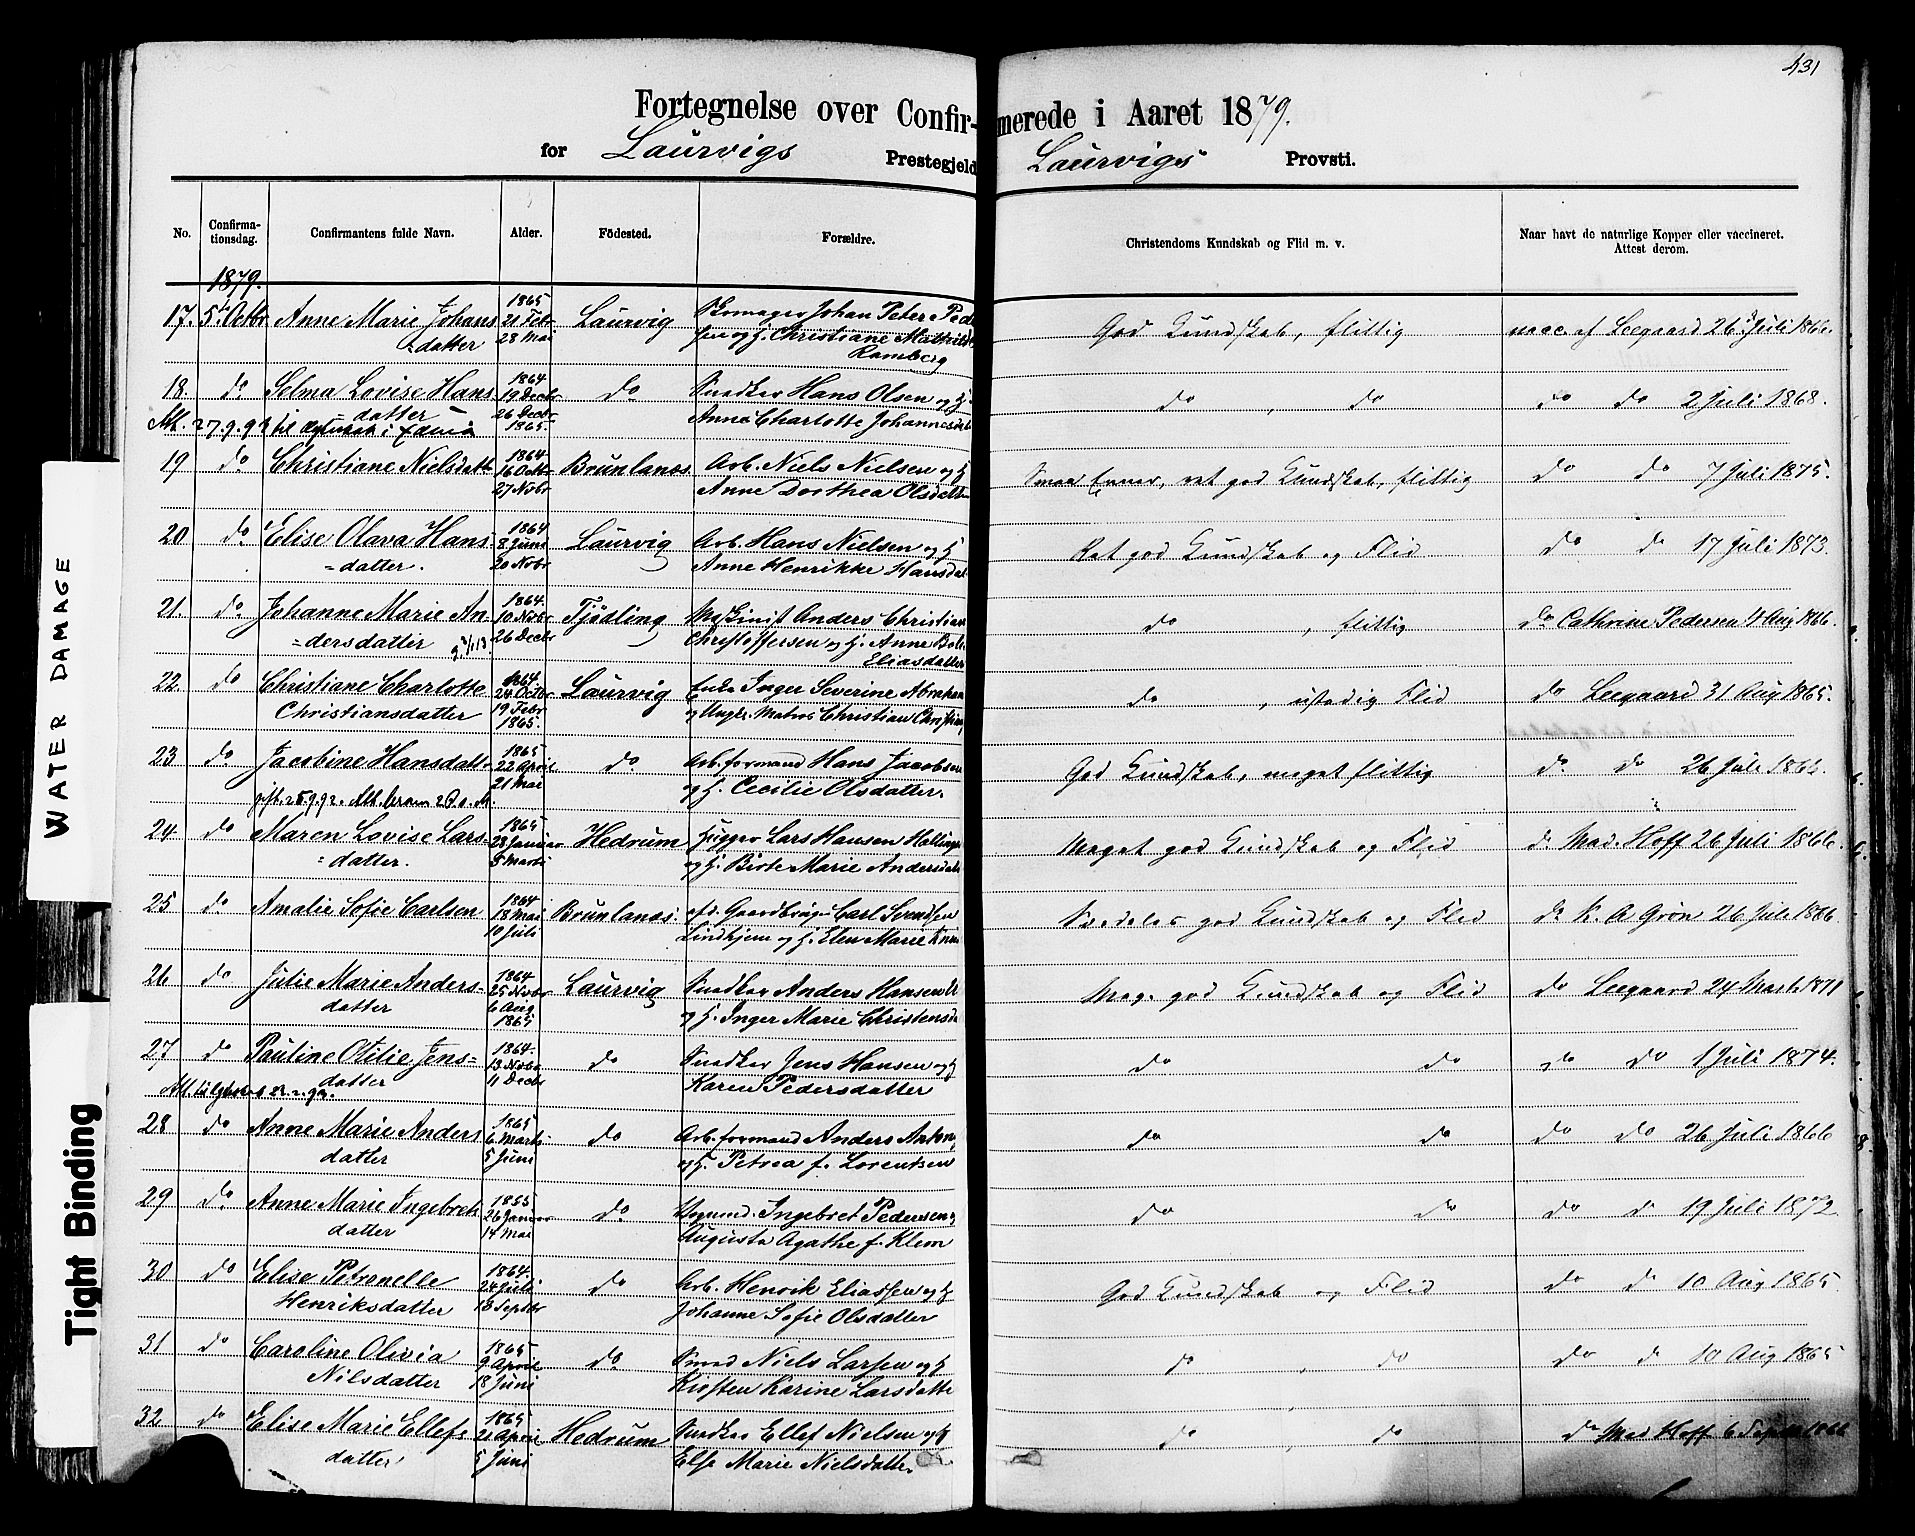 431
Fortegnelse over Confirmerede i Aaret 1879.
for Laurvigs Prestegjeld Laurvigs Provsti.
No. Confirmationsdag. Confirmantens fulde Navn. Alder. Födested. Forældre. Christendoms Kundskab og Flid m. v. Naar havt de naturlige Kopper eller vaccineret. Attest derom.
1879.
17. 5te Octbr Anne Marie Johans=datter 1865 21 Febr 28 Mai Laurvig Skomager Johan Peter Peder
sen og H. Christiane Mathilde Ramberg God Kundskab, flittig vacc. af Leegaard 26 Juli 1866.
18. do Selma Lovise Hans=datter 1864 19 Decbr 26 Decbr 1865. do Snedker Hans Olsen og H.
Anne Charlotte Johannesdat do , do do do 2 Juli 1868.
Att. 27.9.92 til
19 do Christiane Nielsdatt 1864 16 Octbr 27 Novbr Brunlanæs Arb. Niels Nielsen og H
Anne Dorthea Olsdatter Smaa Evner, ret god Kundskab, flittig do do 7 Juli 1875.
20 do Elise Olava Hans=datter. 1864 8 Juni 20 Novbr Laurvig Arb. Hans Nielsen og H
Anne Henrikke Hansdat Ret god Kundskab og Flid do do 17 Juli 1873.
21. do Johanne Marie An=dersdatter 1864. 10 Novbr 26 Decbr Tjödling Maskinist Anders Christian
Christoffersen og H. Anne Eliasdatter do , flittig do Cathrine Pedersen 4 Aug 1866.
22. do Christiane Charlotte Christiansdatter 1864. 24 Octbr 19 Febr 1865. Laurvig Enke Inger Severine Abraham
og Ungk. Matros Christian do , ustadig Flid do Leegaard 31 Aug 1865.
23 do Jacobine Hansdatt. 1865 22 April 21 Mai do Arb.formand Hans Jacobsen
og H. Cecilie Olsdatter. God Kundskab, meget flittig do do 26 Juli 1866.
gift. 25.9.92. Att.
24. do Maren Lovise Lars=datter. 1865 28 Januar 5 Marts Hedrum Hugger Lars Hansen
og H. Birte Marie Andersdat Meget god Kundskab og Flid do Mad. Hoff 26 Juli 1866.
25 do Amalie Sofie Carlsen 1864 18 Mai 10 Juli Brunlanæs. afd. Gaardbruger Carl Svendsen
Lindhjem og H. Elen Marie Særdeles god Kundskab og Flid do K. A Grøn 26 Juli 1866
26 do Julie Marie Anders=datter 1864 25 Novbr 6 Aug 1865 Laurvig Snedker Anders Hansen
og H. Inger Marie Christensda Meg. god Kundskab og Flid do Leegaard 24 Marts 1871
27 do Pauline Otilie Jens=datter 1864. 13 Novbr 11 Decbr do Snedker Jens Hansen og H
Karen Pedersdatter do do do do 1 Juli 1874.
Att.
28 do Anne Marie Anders datter 1865 6 Marts 5 Juni do Arb.formand Anders Anton
og H. Petrea f. Lorentsen do do do do 26 Juli 1866
29 do Anne Marie Ingebrets datter 1865 26 Januar 14 Mai do Ingebret Pedersen
Augusta Agathe f. Klem do do do do 19 Juli 1872
30 do Elise Petronelle Henriksdatter 1864. 24 Juli 18 Septbr do Arb. Henrik Eliassen og H
Johanne Sofie Olsdatter God Kundskab og Flid do do 10 Aug 1865
31 do Caroline Olivia Nilsdatter 1865 9 April 18 Juni do Smed Niels Larsen og H
Kirsten Karine Larsdatte do , do do do 10 Aug 1865
32 do Elise Marie Ellefs datter 1865 21 April 5 Juni Hedrum Snedker Ellef Nielsen og H
Else Marie Nielsdatter. do , do do Mad Hoff 6 1866
WATER DAMAGE
Tight Binding